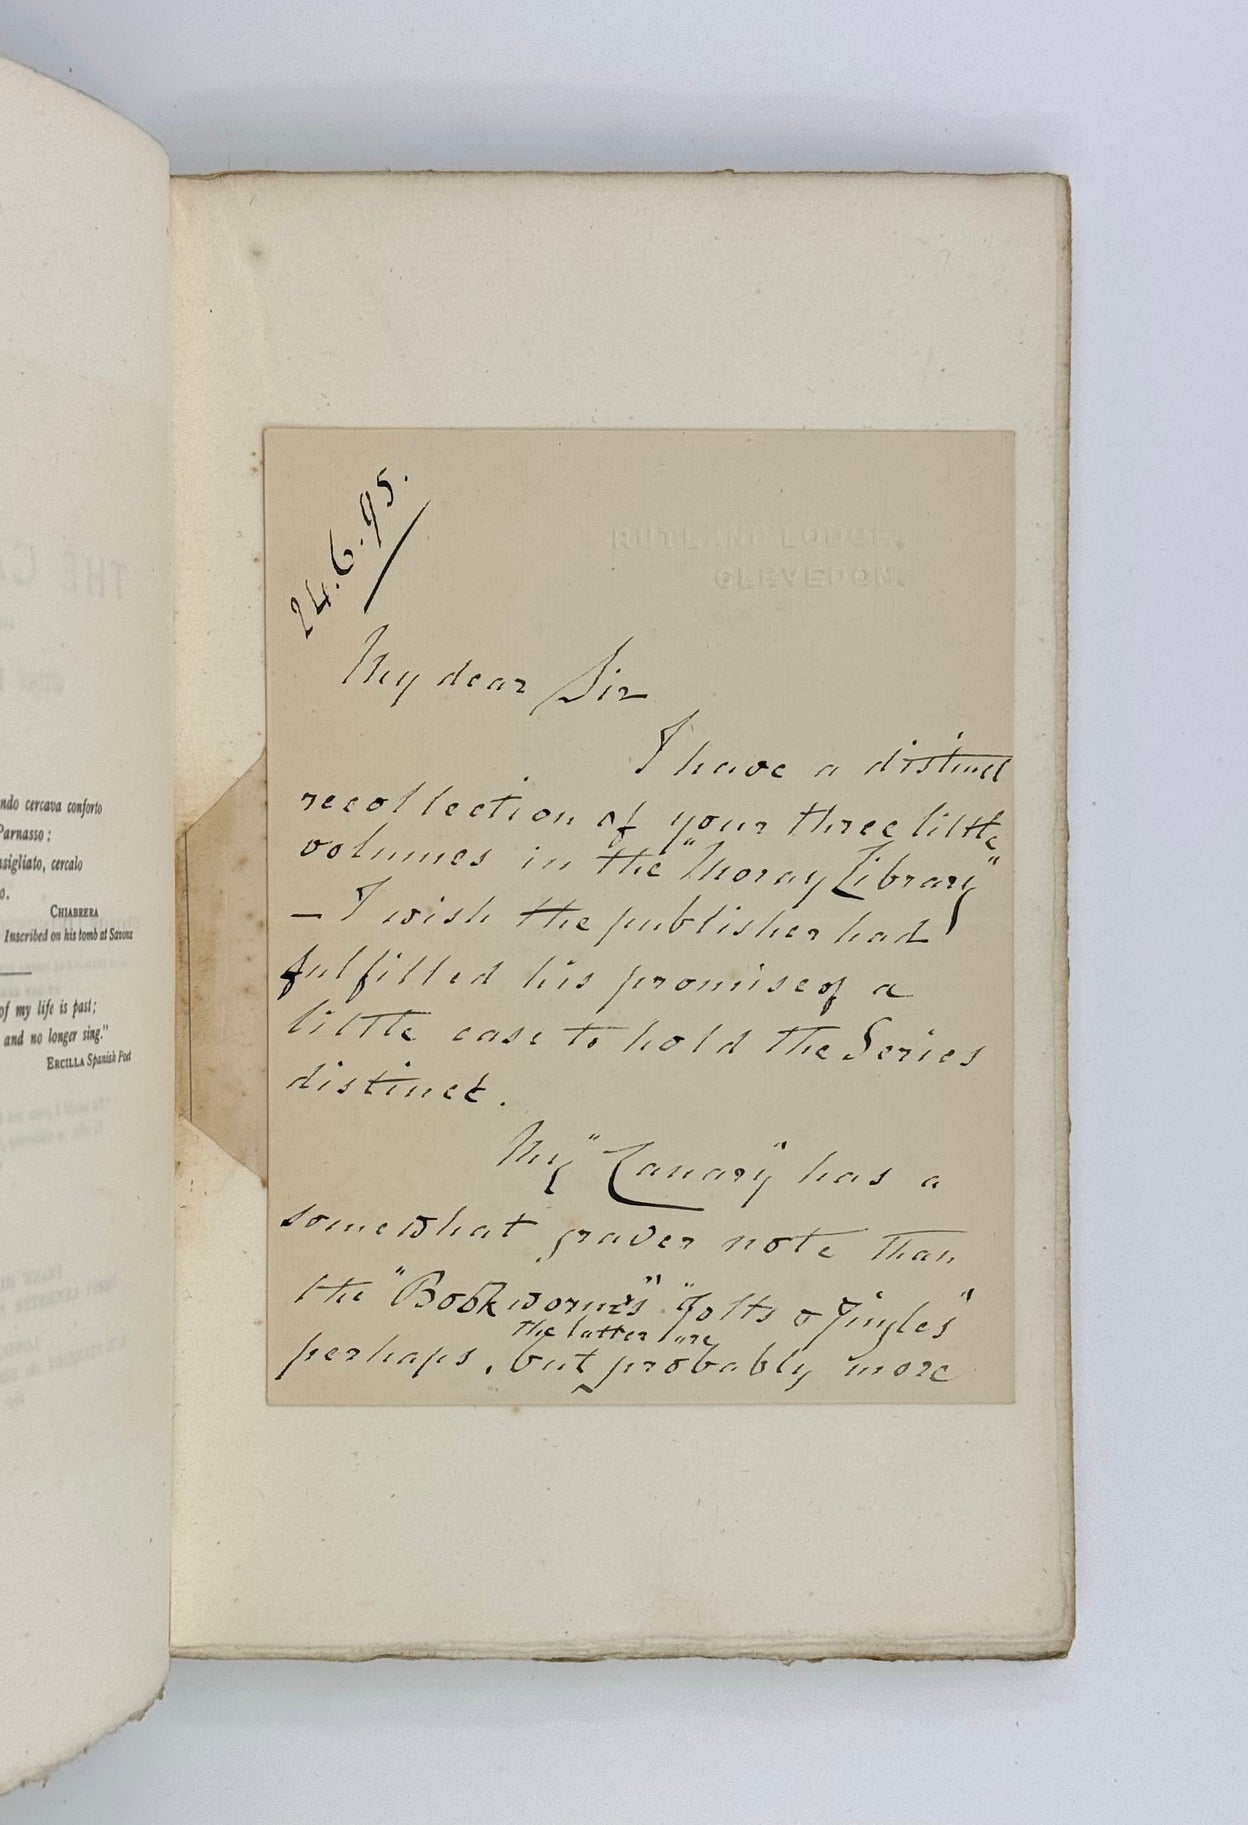 ndo cercava conforto
Parnasso:
nsigliato, cercalo
o.
CHIABRERA
Inscribed on his tomb at Savona
of my life is past;
and no longer sing."
ERCILLA Spanish Poet
RUTLAND LODGE,
CLEVEDON.
24.6.95.
My dear Sir
I have a distinct
recollection of your three little
volumes in the "Moray Library"
– I wish the publisher had
fulfilled his promise of a
little case to hold the Series
distinct.
My "Canary" has a
somewhat graver note than
the "Bookworm's" "Jolts & Jingles"
the latter are
perhaps, but probably more